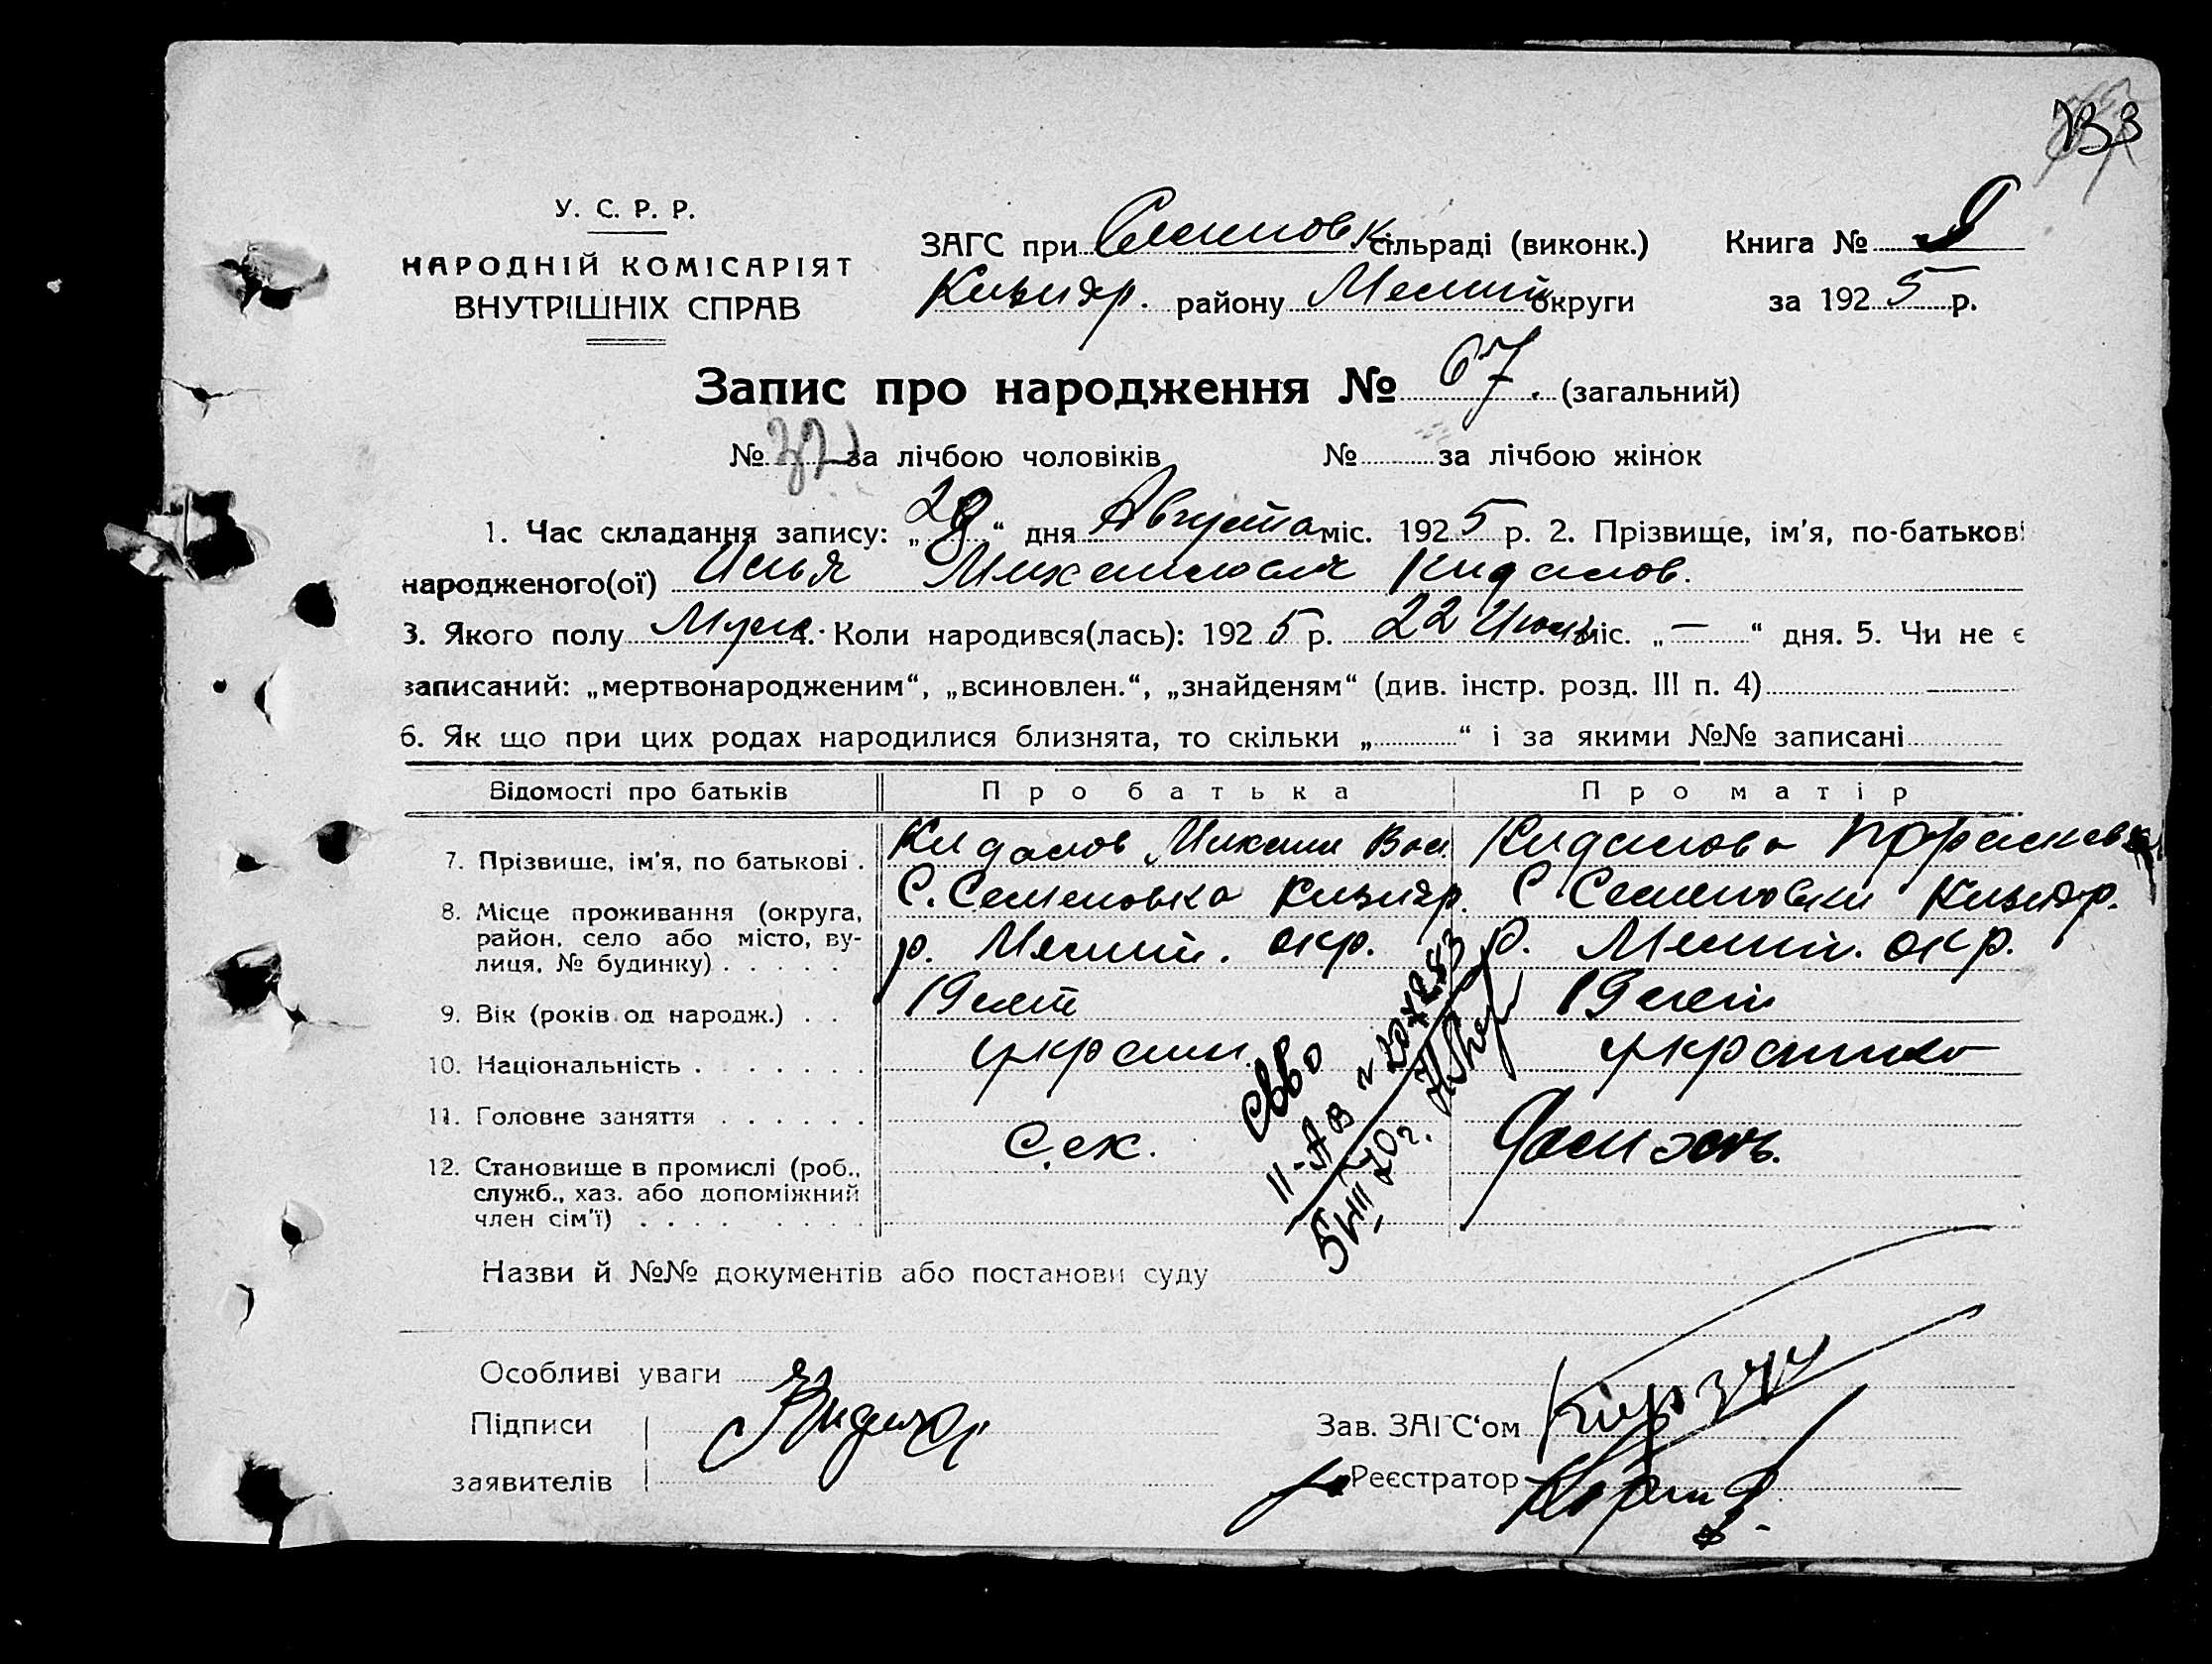 133
У. С. Р. Р.
НАРОДНІЙ КОМІСАРІЯТ
ВНУТРІШНІХ СПРАВ
ЗАГС при Семеновк сільраді (виконк.) Книга №
Кизияр. району Мелит округи за 1925 р.
Запис про народження № 67. (загальний)
№ 37 за лічбою чоловіків № за лічбою жінок
1. Час складання запису: „28“ дня Августа міс. 1925 р. 2. Прізвище, ім'я, по-батькові
народженого(ої) Илья Михайлович Кидалов.
3. Якого полу Муж. 4. Коли народився(лась): 1925 р. 22 Июль міс. „—“ дня. 5. Чи не є
записаний: „мертвонародженим“, „всиновлен.“, „знайденям“ (див. інстр. розд. III п. 4)
6. Як що при цих родах народилися близнята, то скільки „ “ і за якими №№ записані
Відомості про батьків Про батька Про матір
7. Прізвище, ім'я, по батькові . Кидалов Михаил Вас Кидалова Прасковья
8. Місце проживання (округа, С. Семеновка Кизияр. С Семеновки Кизияр.
район, село або місто, ву- р. Мелит. окр. р. Мелит. окр.
лиця, № будинку) . . . . .
9. Вік (років од народж.) . . 19 лет 19 лет
10. Національність . . . . . . . украин. украинка
11. Головне заняття . . . . . .
с.ск. Домхоз.
12. Становище в промислі (роб.,
служб., хаз. або допоміжний
член сім'ї) . . . . . . . . .
II-АВ №
5/VIII 40г.
Назви й №№ документів або постанови суду
Особливі уваги
Підписи Зав. ЗАГС'ом
заявителів Реєстратор